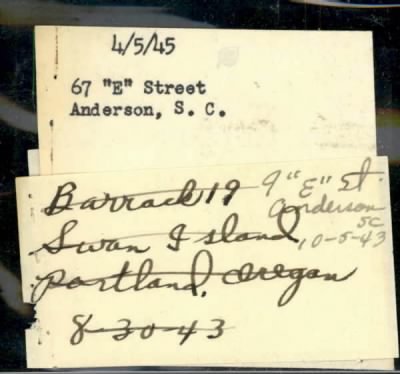 4/5/45
67 "E" Street
Anderson, S. C.
Barrack 19
Swan Island,
Portland, Oregon
8-30-43
9 "E" St
Anderson
SC
10-5-43